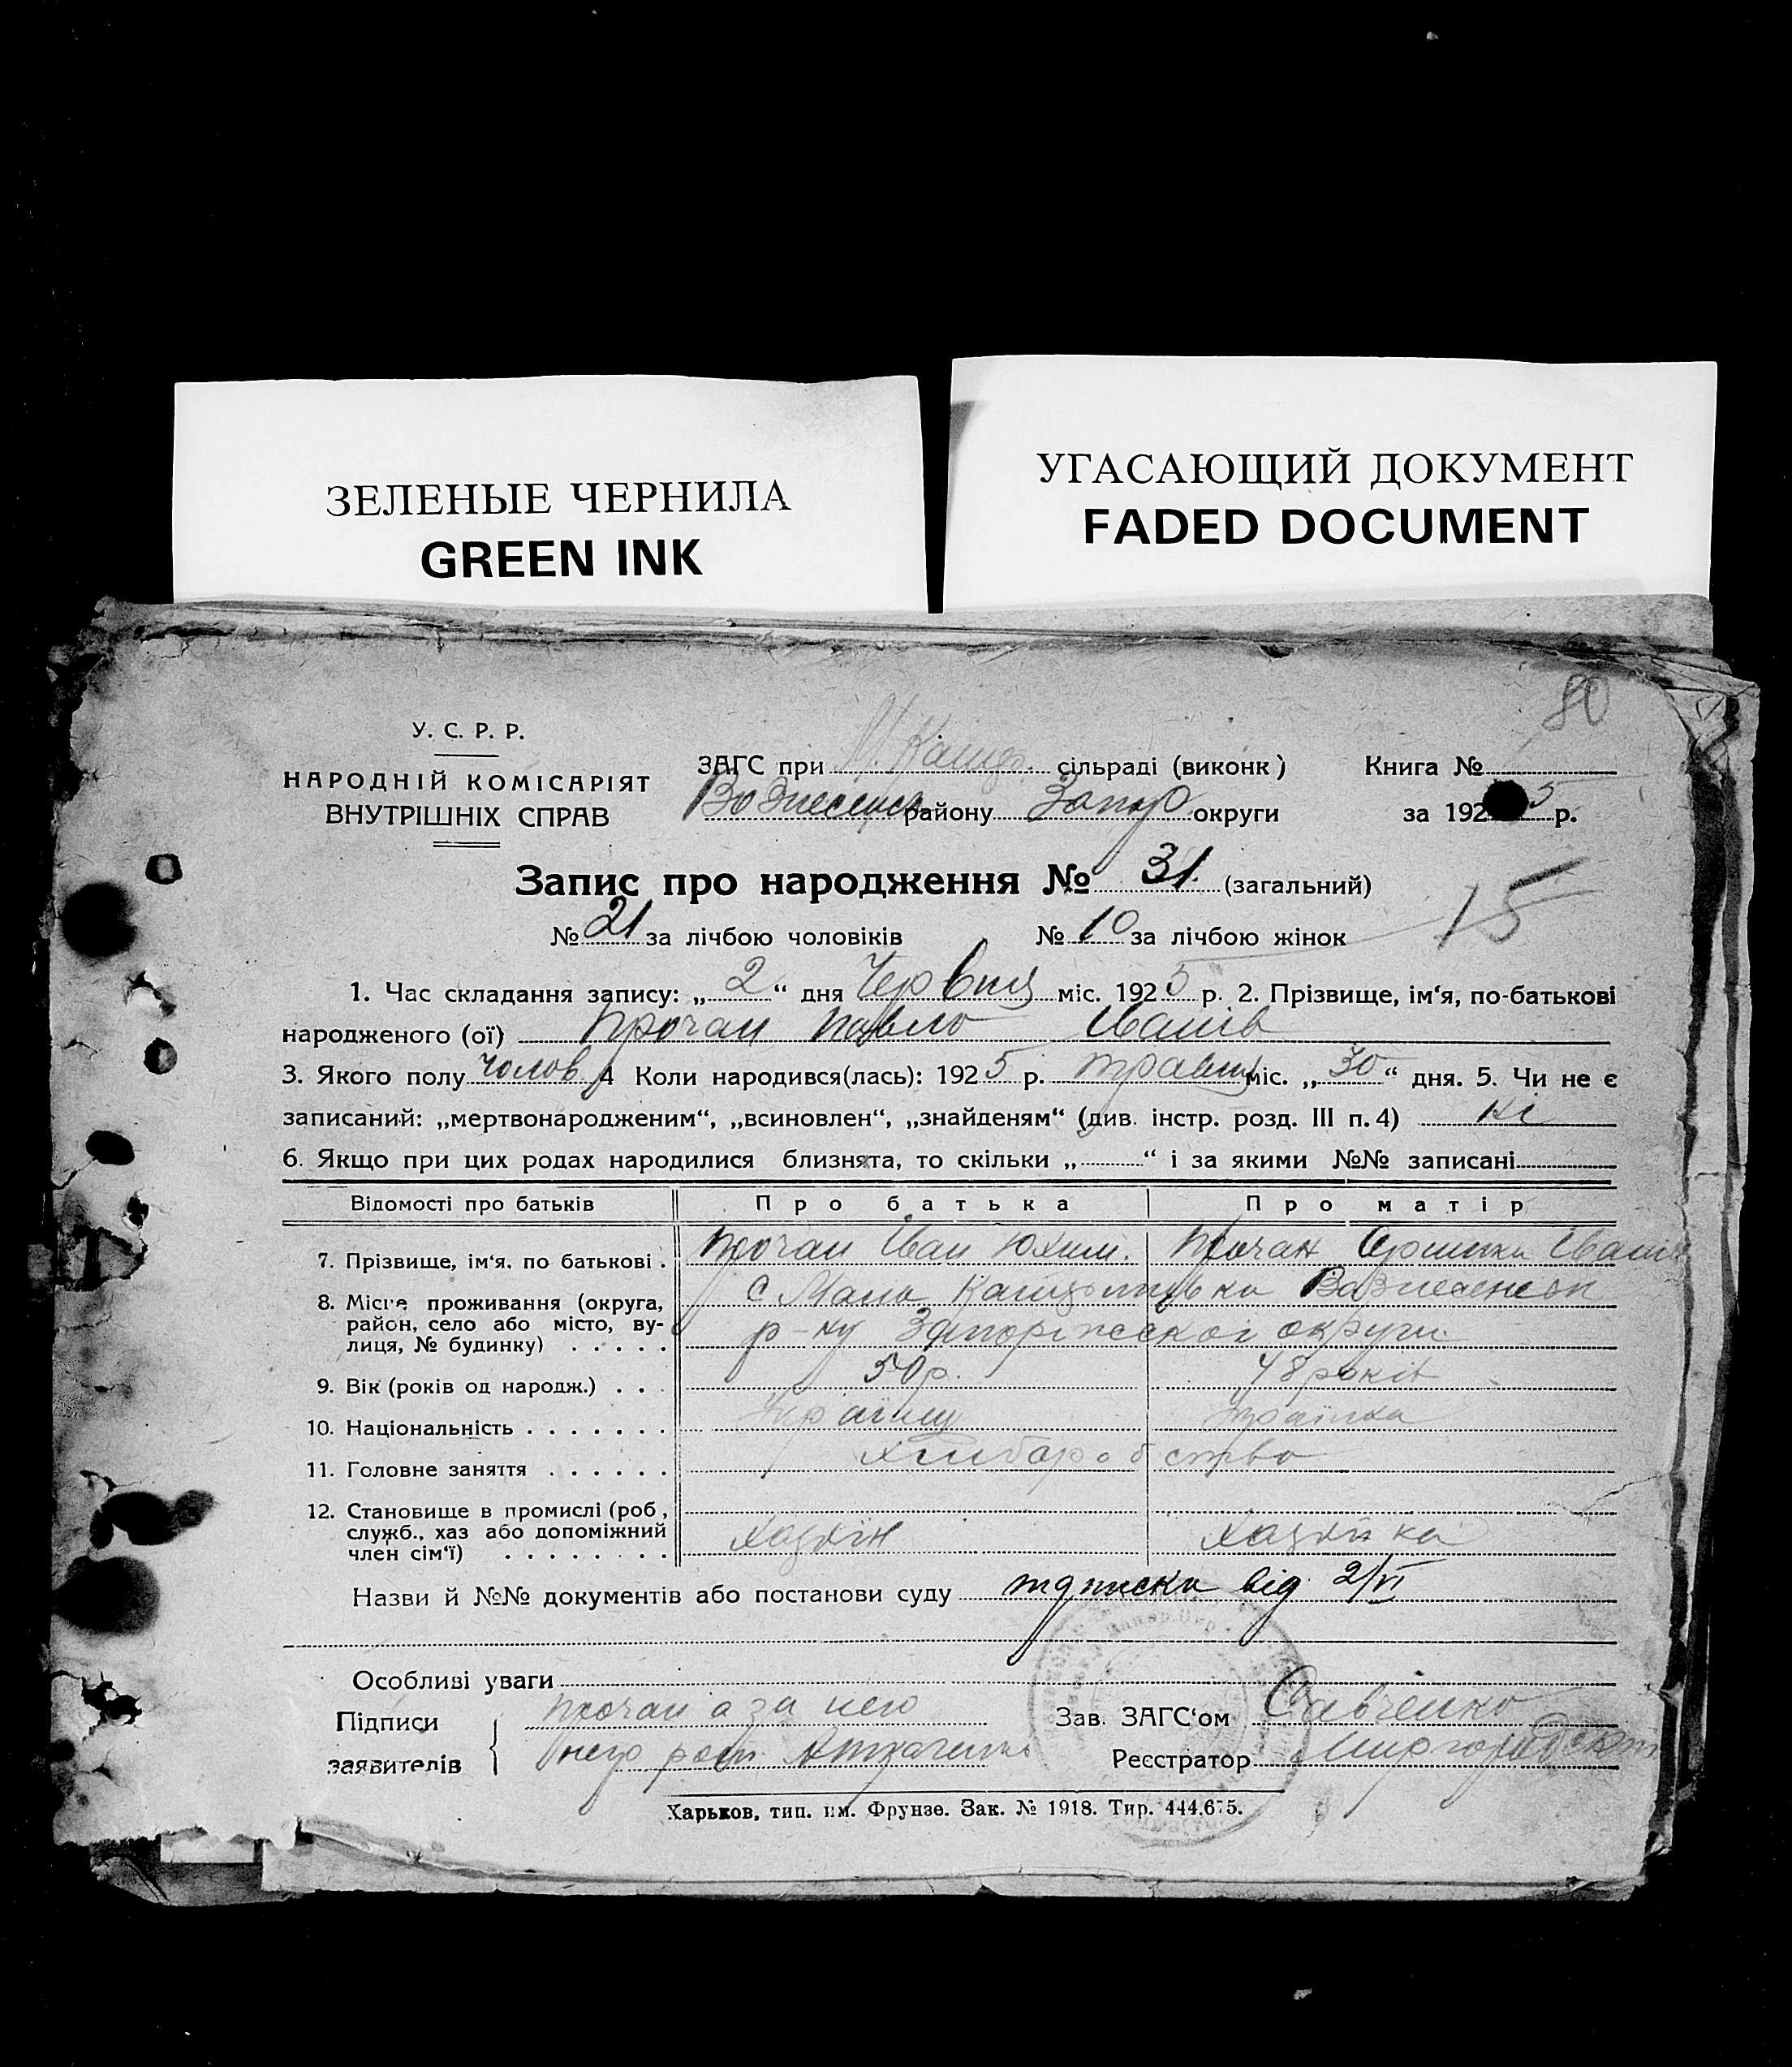 ЗЕЛЕНЫЕ ЧЕРНИЛА
GREEN INK
УГАСАЮЩИЙ ДОКУМЕНТ
FADED DOCUMENT
80
У. С. Р. Р.
НАРОДНІЙ КОМІСАРІЯТ
ВНУТРІШНІХ СПРАВ
ЗАГС при М. Катщ. сільраді (виконк) Книга №
Вознесенськ району Запор округи за 1925 р.
Запис про народження № 31. (загальний)
15
№ 21 за лічбою чоловіків № 10 за лічбою жінок
1. Час складання запису: „ 2 “ дня Червня міс. 1925 р. 2. Прізвище, ім‘я, по-батькові
народженого (ої) Прочан Павло Іванів
3. Якого полу чолов. 4 Коли народився(лась): 1925 р. травня міс. „ 30 “ дня. 5. Чи не є
записаний: „мертвонародженим“, „всиновлен“, „знайденям“ (див. інстр. розд. III п. 4) ні
6. Якщо при цих родах народилися близнята, то скільки „ “ і за якими №№ записані
Відомості про батьків Про батька Про матір
7. Прізвище, ім‘я. по батькові . Прочан Іван Юхим. Прочан Іванів
8. Місце проживання (округа, район, село або місто, вулиця, № будинку) . . . . . с. Мала Вознесенськ
р-ну Запоріжської округи
9. Вік (років од народж.) . . . 50 р. 48 років
10. Національність . . . . . . . Українец Українка
11. Головне заняття . . . . . . хлиборобство
12. Становище в промислі (роб, служб., хаз або допоміжний член сім‘ї) . . . . . . . . хазяїн хазяйка
Назви й №№ документів або постанови суду від 2/VI
Особливі уваги
Підписи заявителів Прочан а за него
него рост. Ткаченко
Зав. ЗАГС‘ом Савченко
Реєстратор
Харьков, тип. им. Фрунзе. Зак. № 1918. Тир. 444.675.